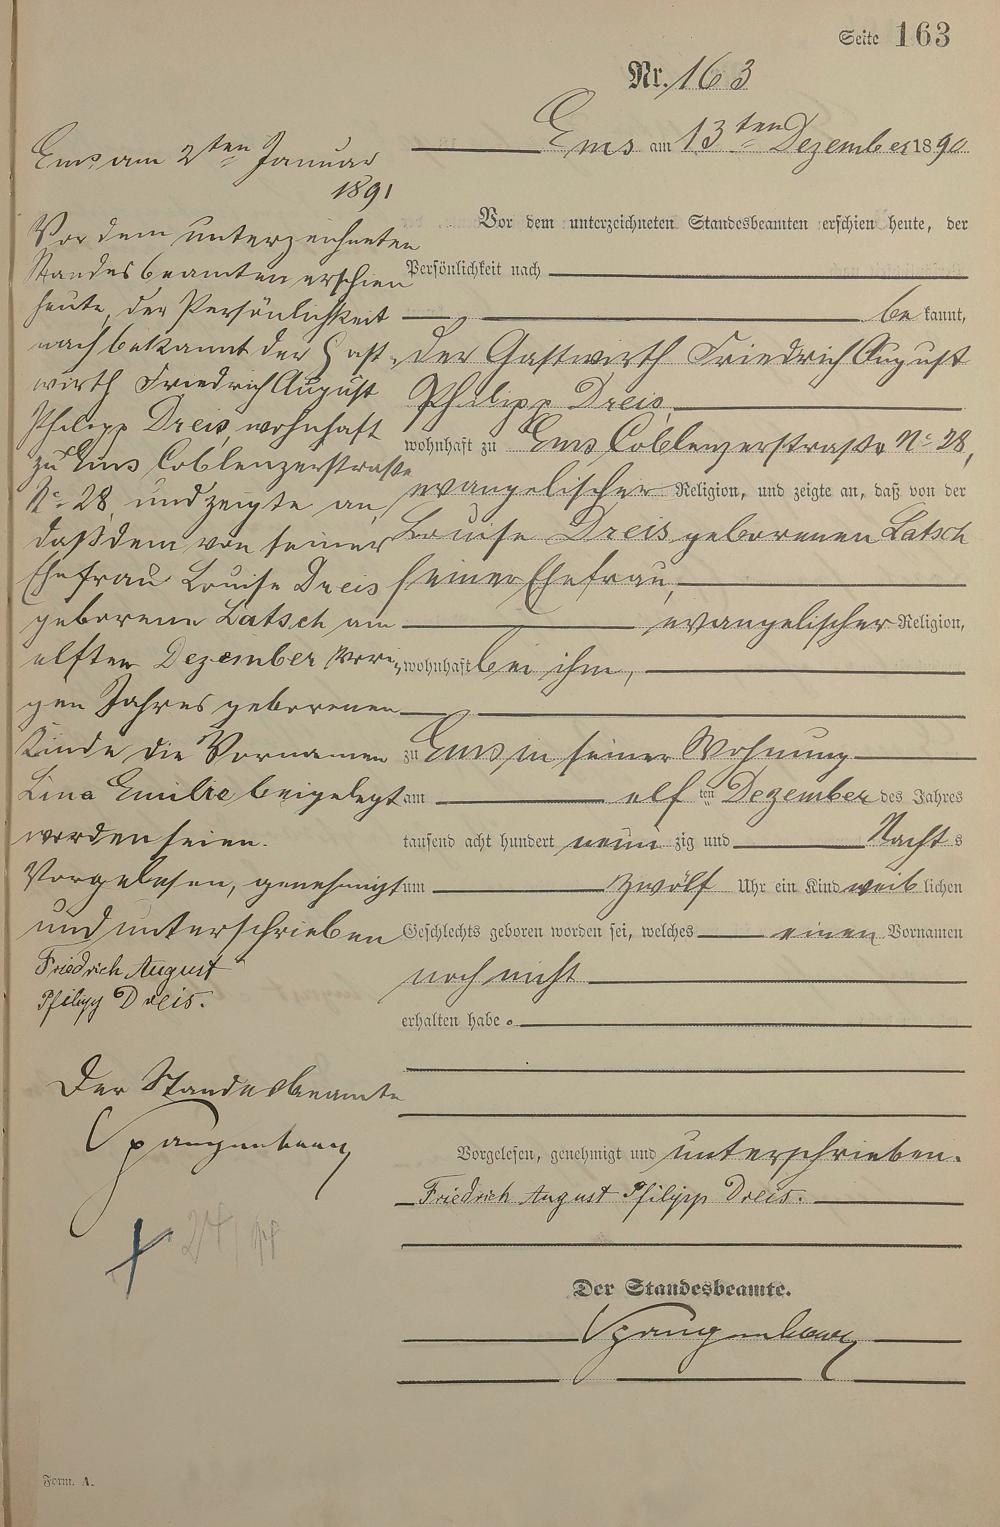 Seite 163
Nr. 163
Ems am 13ten Dezember 1890
Vor dem unterzeichneten Standesbeamten erschien heute, der
Persönlichkeit nach
bekannt,
der Gastwirth Friedrich August
Philipp Dreis,
wohnhaft zu Ems Coblenzerstraße No 28,
evangelischer Religion, und zeigte an, daß von der
Louise Dreis geborenen Latsch
seiner Ehefrau,
evangelischer Religion,
wohnhaft bei ihm,
zu Ems in seiner Wohnung
am elften Dezember des Jahres
tausend acht hundert neunzig und Nachts
um zwölf Uhr ein Kind weiblichen
Geschlechts geboren worden sei, welches einen Vornamen
noch nicht
erhalten habe.
Vorgelesen, genehmigt und unterschrieben.
Friedrich August Philipp Dreis.
Der Standesbeamte.
Spangenberg
Ems am 2ten Januar
1891
Vor dem unterzeichneten
Standesbeamten erschien
heute, der Persönlichkeit
nach bekannt der Gast-
wirth Friedrich August
Philipp Dreis, wohnhaft
zu Ems Coblenzerstraße
No 28, und zeigte an,
daß dem von seiner
Ehefrau Louise Dreis
geborene Latsch am
elften Dezember vori-
gen Jahres geborenen
Kinde die Vornamen
Lina Emilie beigelegt
worden seien.
Vorgelesen, genehmigt
und unterschrieben
Friedrich August
Philipp Dreis.
Der Standesbeamte
Spangenberg
Form. A.